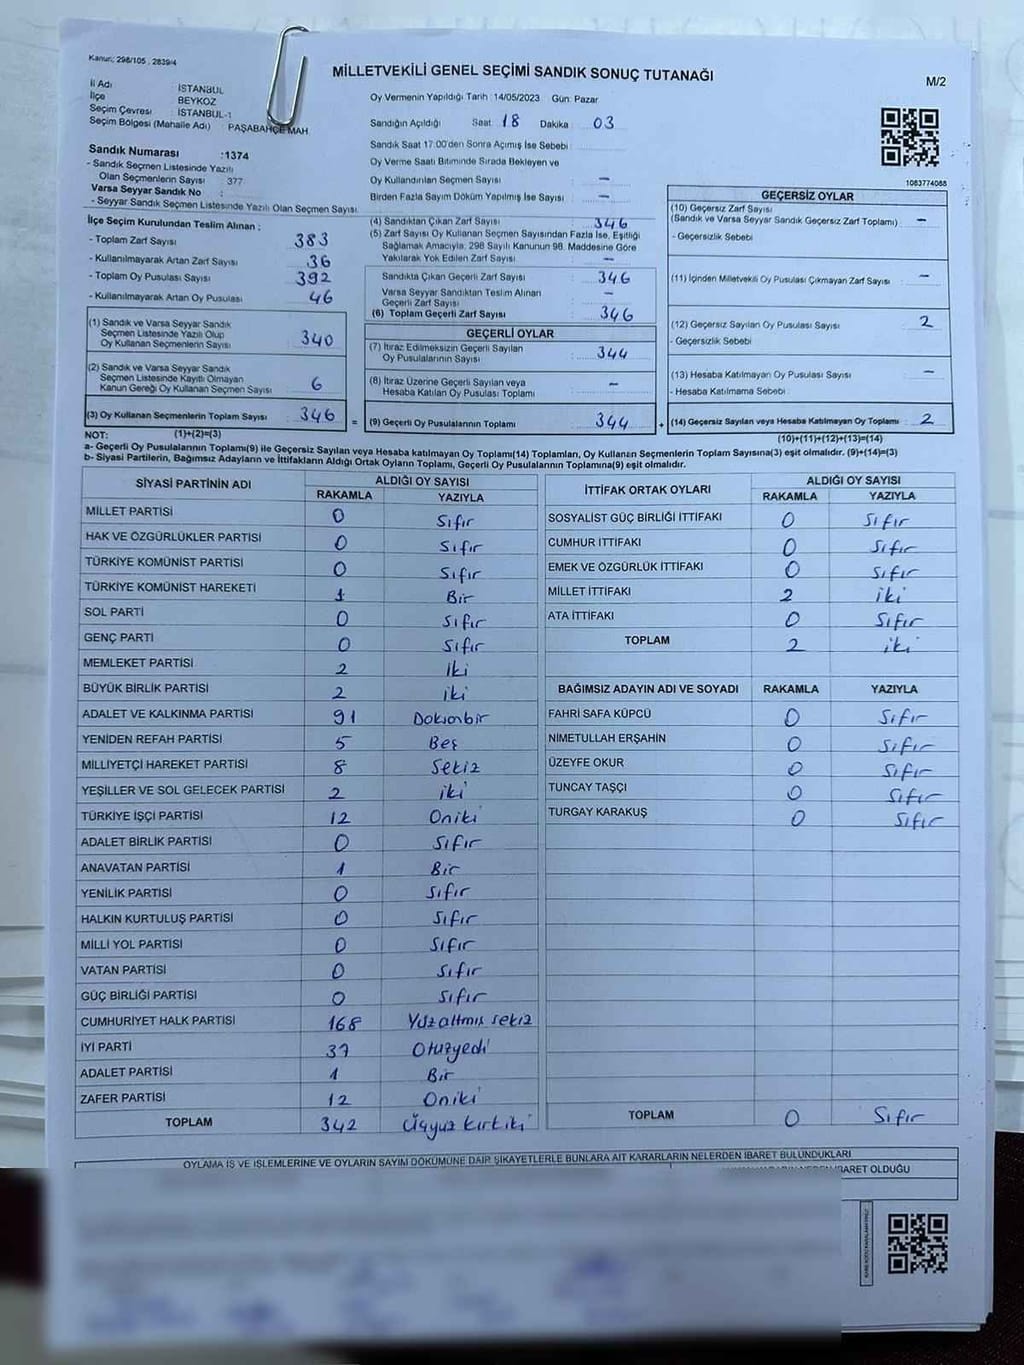 Kanun: 298/105 , 2839/4
MİLLETVEKİLİ GENEL SEÇİMİ SANDIK SONUÇ TUTANAĞI
M/2
İl Adı İSTANBUL
İlçe BEYKOZ
Seçim Çevresi İSTANBUL-1
Seçim Bölgesi (Mahalle Adı) PAŞABAHÇE MAH
Oy Vermenin Yapıldığı Tarih : 14/05/2023 Gün: Pazar
Sandığın Açıldığı Saat 18 Dakika : 03
Sandık Saat 17:00'den Sonra Açımış İse Sebebi :
Oy Verme Saati Bitiminde Sırada Bekleyen ve
Oy Kullandırılan Seçmen Sayısı : –
Birden Fazla Sayım Döküm Yapılmış İse Sayısı : –
Sandık Numarası :1374
- Sandık Seçmen Listesinde Yazılı
Olan Seçmenlerin Sayısı : 377
Varsa Seyyar Sandık No :
- Seyyar Sandık Seçmen Listesinde Yazılı Olan Seçmen Sayısı:
1083774088
İlçe Seçim Kurulundan Teslim Alınan :
- Toplam Zarf Sayısı 383
- Kullanılmayarak Artan Zarf Sayısı : 36
- Toplam Oy Pusulası Sayısı : 392
- Kullanılmayarak Artan Oy Pusulası : 46
(1) Sandık ve Varsa Seyyar Sandık
Seçmen Listesinde Yazılı Olup
Oy Kullanan Seçmenlerin Sayısı : 340
(2) Sandık ve Varsa Seyyar Sandık
Seçmen Listesinde Kayıtlı Olmayan
Kanun Gereği Oy Kullanan Seçmen Sayısı : 6
(3) Oy Kullanan Seçmenlerin Toplam Sayısı : 346
(1)+(2)=(3)
(4) Sandıktan Çıkan Zarf Sayısı : 346
(5) Zarf Sayısı Oy Kullanan Seçmen Sayısından Fazla İse, Eşitliği
Sağlamak Amacıyla, 298 Sayılı Kanunun 98. Maddesine Göre
Yakılarak Yok Edilen Zarf Sayısı : –
Sandıkta Çıkan Geçerli Zarf Sayısı : 346
Varsa Seyyar Sandıktan Teslim Alınan
Geçerli Zarf Sayısı : –
(6) Toplam Geçerli Zarf Sayısı : 346
GEÇERLİ OYLAR
(7) İtiraz Edilmeksizin Geçerli Sayılan
Oy Pusulalarının Sayısı : 344
(8) İtiraz Üzerine Geçerli Sayılan veya
Hesaba Katılan Oy Pusulası Toplamı : –
= (9) Geçerli Oy Pusulalarının Toplamı : 344
GEÇERSİZ OYLAR
(10) Geçersiz Zarf Sayısı
(Sandık ve Varsa Seyyar Sandık Geçersiz Zarf Toplamı) : –
- Geçersizlik Sebebi :
(11) İçinden Milletvekili Oy Pusulası Çıkmayan Zarf Sayısı : –
(12) Geçersiz Sayılan Oy Pusulası Sayısı : 2
- Geçersizlik Sebebi :
(13) Hesaba Katılmayan Oy Pusulası Sayısı : –
- Hesaba Katılmama Sebebi :
+ (14) Geçersiz Sayılan veya Hesaba Katılmayan Oy Toplamı : 2
(10)+(11)+(12)+(13)=(14)
NOT:
a- Geçerli Oy Pusulalarının Toplamı(9) ile Geçersiz Sayılan veya Hesaba katılmayan Oy Toplamı(14) Toplamları, Oy Kullanan Seçmenlerin Toplam Sayısına(3) eşit olmalıdır. (9)+(14)=(3)
b- Siyasi Partilerin, Bağımsız Adayların ve İttifakların Aldığı Ortak Oyların Toplamı, Geçerli Oy Pusulalarının Toplamına(9) eşit olmalıdır.
SİYASİ PARTİNİN ADI ALDIĞI OY SAYISI
RAKAMLA YAZIYLA
MİLLET PARTİSİ 0 Sıfır
HAK VE ÖZGÜRLÜKLER PARTİSİ 0 Sıfır
TÜRKİYE KOMÜNİST PARTİSİ 0 Sıfır
TÜRKİYE KOMÜNİST HAREKETİ 1 Bir
SOL PARTİ 0 Sıfır
GENÇ PARTİ 0 Sıfır
MEMLEKET PARTİSİ 2 İki
BÜYÜK BİRLİK PARTİSİ 2 iki
ADALET VE KALKINMA PARTİSİ 91 Doksanbir
YENİDEN REFAH PARTİSİ 5 Beş
MİLLİYETÇİ HAREKET PARTİSİ 8 Sekiz
YEŞİLLER VE SOL GELECEK PARTİSİ 2 iki
TÜRKİYE İŞÇİ PARTİSİ 12 Oniki
ADALET BİRLİK PARTİSİ 0 Sıfır
ANAVATAN PARTİSİ 1 Bir
YENİLİK PARTİSİ 0 Sıfır
HALKIN KURTULUŞ PARTİSİ 0 Sıfır
MİLLİ YOL PARTİSİ 0 Sıfır
VATAN PARTİSİ 0 Sıfır
GÜÇ BİRLİĞİ PARTİSİ 0 Sıfır
CUMHURİYET HALK PARTİSİ 168 Yüzaltmış sekiz
İYİ PARTİ 37 Otuzyedi
ADALET PARTİSİ 1 Bir
ZAFER PARTİSİ 12 Oniki
TOPLAM 342 Üçyüz kırkiki
İTTİFAK ORTAK OYLARI ALDIĞI OY SAYISI
RAKAMLA YAZIYLA
SOSYALİST GÜÇ BİRLİĞİ İTTİFAKI 0 Sıfır
CUMHUR İTTİFAKI 0 Sıfır
EMEK VE ÖZGÜRLÜK İTTİFAKI 0 Sıfır
MİLLET İTTİFAKI 2 iki
ATA İTTİFAKI 0 Sıfır
TOPLAM 2 iki
BAĞIMSIZ ADAYIN ADI VE SOYADI RAKAMLA YAZIYLA
FAHRİ SAFA KÜPCÜ 0 Sıfır
NİMETULLAH ERŞAHİN 0 Sıfır
ÜZEYFE OKUR 0 Sıfır
TUNCAY TAŞÇI 0 Sıfır
TURGAY KARAKUŞ 0 Sıfır
TOPLAM 0 Sıfır
OYLAMA İŞ VE İŞLEMLERİNE VE OYLARIN SAYIM DÖKÜMÜNE DAİR ŞİKAYETLERLE BUNLARA AİT KARARLARIN NELERDEN İBARET BULUNDUKLARI
İBARET OLDUĞU